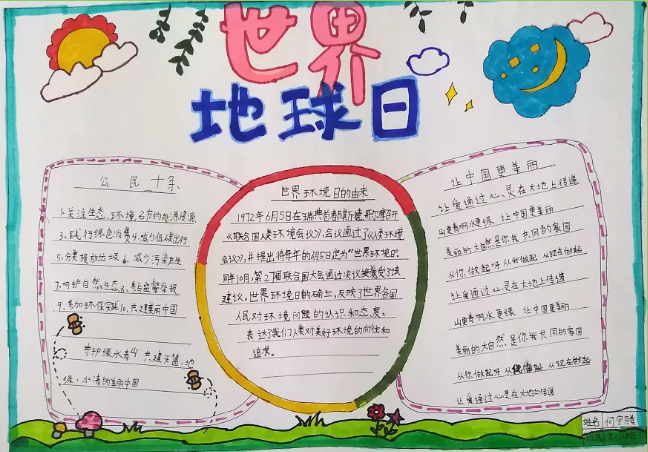 世界
地球日
公民十条
1.关注生态环境 2.节约能源资源
3.践行绿色消费 4.减少低碳出行
5.分类投放垃圾 6.减少污染产生
7.呵护自然生态 8.参与监督举报
9.参加环保实践 10.共建美丽中国
守护绿水青山 共建天蓝、地
绿、水清的美丽中国
世界环境日的由来
1972年6月5日在瑞典首都斯德哥尔摩召开
《联合国人类环境会议》,会议通过了《人类环境
会议》,并提出将每年的6月5日定为"世界环境日"。
同年10月,第27届联合国大会通过决议接受了该
建议,世界环境日的确立,反映了世界各国
人民对环境问题的认识和态度,
表达了我们人类对美好环境的向往和
追求。
让中国更美丽
让爱通过心灵在大地上传递
山更青啊水更绿 让中国更美丽
美丽的大自然是你我共同的家园
从你做起好 从我做起 从现在做起
让爱通过心灵在大地上传递
山更青啊水更绿 让中国更美丽
美丽的大自然是你我共同的家园
从你做起好 从我做起 从现在做起
让爱通过心灵在大地上传递
姓名 何宇